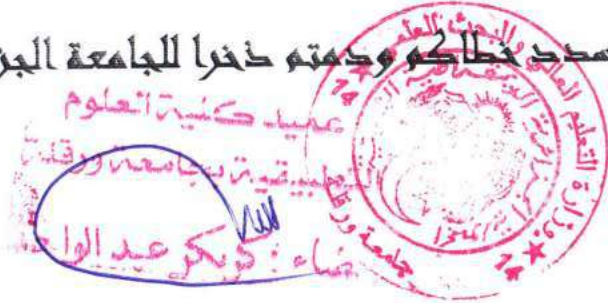 سدد خطاكم ودمتم ذخرا للجامعة الجز
عميد كلية العلوم
التطبيقية بجامعة ورقلة
إمضاء : كويكر عبد الواحد
وزارة التعليم العالي و البحث العلمي
جامعة ورقلة